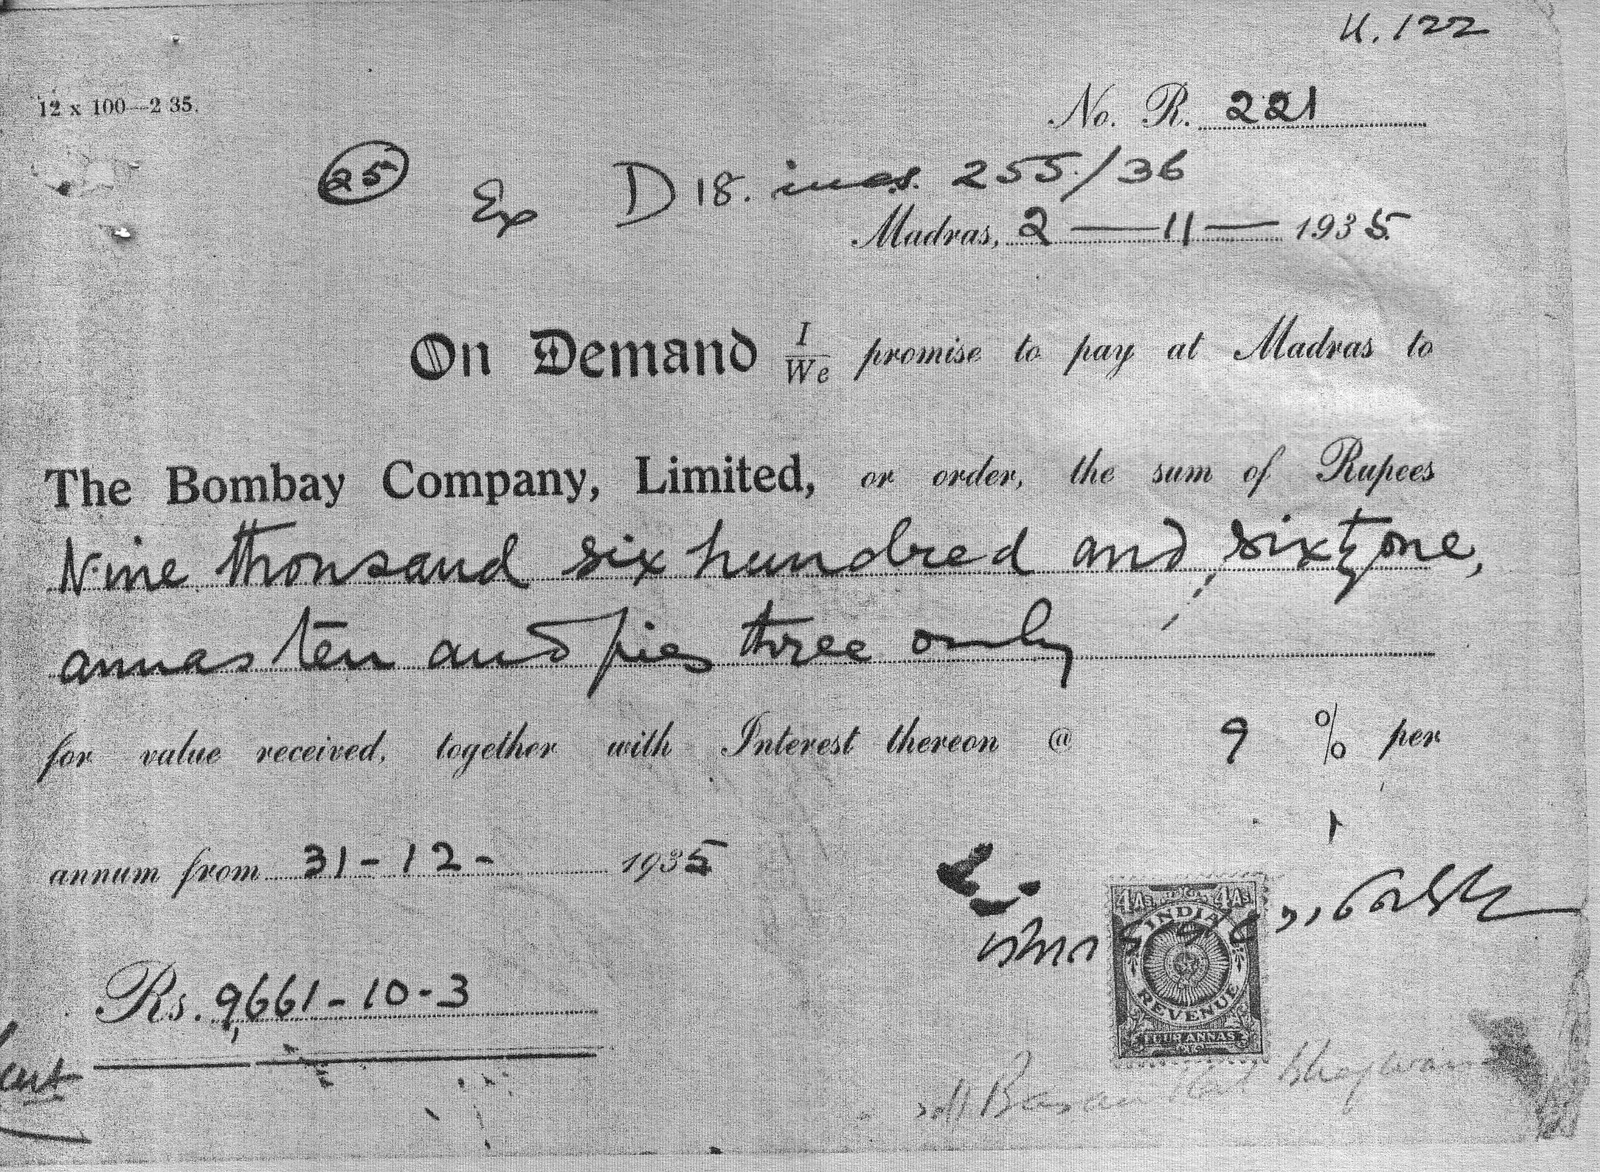 U. 122
12 x 100—2 35.
No. R. 221
25 Ex D 18. 255/36
Madras, 2 — 11 — 1935
On Demand I/We promise to pay at Madras to
The Bombay Company, Limited, or order, the sum of Rupees
Nine thousand six hundred and sixty one,
annas ten and pies three only
for value received, together with Interest thereon @ 9 % per
annum from 31 - 12 - 1935
4As. 4As.
INDIA
REVENUE
FOUR ANNAS
Rs. 9,661 - 10 - 3